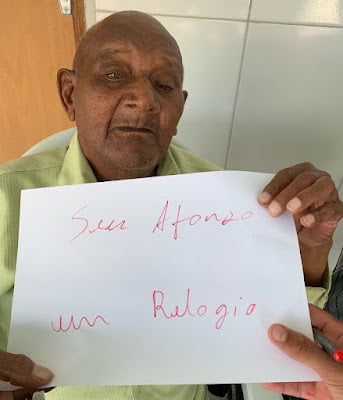 Seu Afonzo
um Relogio